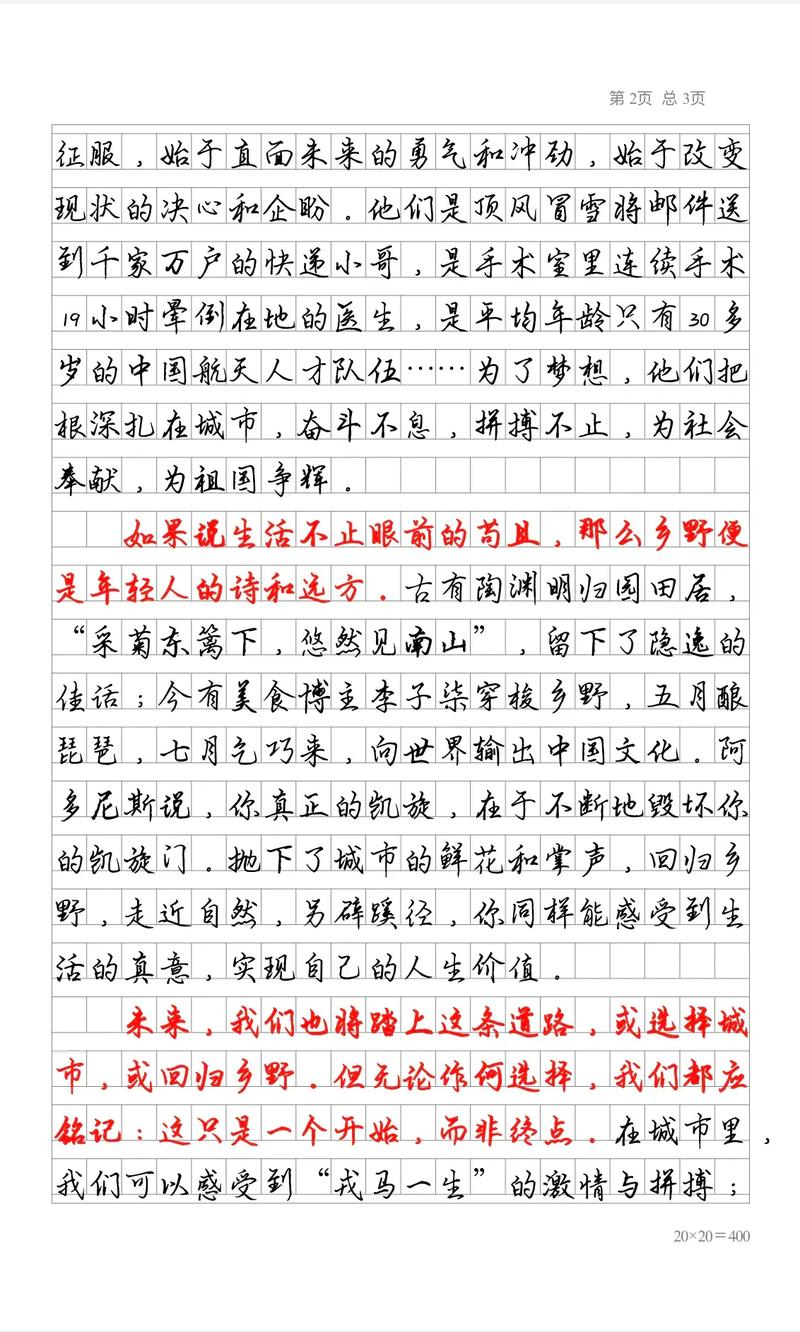 第 2页 总 3页
征服，始于直面未来的勇气和冲劲，始于改变
现状的决心和企盼．他们是顶风冒雪将邮件送
到千家万户的快递小哥，是手术室里连续手术
19小时晕倒在地的医生，是平均年龄只有30多
岁的中国航天人才队伍……为了梦想，他们把
根深扎在城市，奋斗不息，拼搏不止，为社会
奉献，为祖国争辉．
如果说生活不止眼前的苟且，那么乡野便
是年轻人的诗和远方．古有陶渊明归园田居，
“采菊东篱下，悠然见南山”，留下了隐逸的
佳话；今有美食博主李子柒穿梭乡野，五月酿
琵琶，七月乞巧来，向世界输出中国文化．阿
多尼斯说，你真正的凯旋，在于不断地毁坏你
的凯旋门．抛下了城市的鲜花和掌声，回归乡
野，走近自然，另辟蹊径，你同样能感受到生
活的真意，实现自己的人生价值．
未来，我们也将踏上这条道路，或选择城
市，或回归乡野．但无论作何选择，我们都应
铭记：这只是一个开始，而非终点．在城市里，
我们可以感受到“戎马一生”的激情与拼搏；
20×20＝400